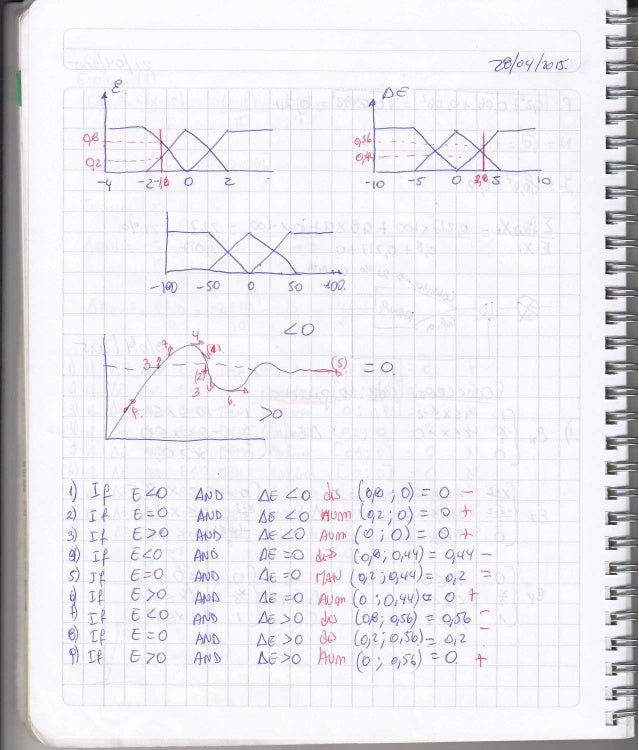 28/04/2015.
E.
ΔE
0,8
0,2
-4 -2 -1,6 0 2
0,56
0,44
-10 -5 0 2,8 5 10
-100 -50 0 50 100.
<0
4
3
(2)
3
6.
(5)
= 0.
>0
1) If E<0 AND ΔE<0 dis (0,8 ; 0) = 0 -
2) If E=0 AND ΔE<0 Aum (0,2 ; 0) = 0 +
3) If E>0 AND ΔE<0 Aum (0 ; 0) = 0 +
4) If E<0 AND ΔE=0 dis (0,8 ; 0,44) = 0,44 -
5) If E=0 AND ΔE=0 MAN (0,2 ; 0,44) = 0,2 =
6) If E>0 AND ΔE=0 Aum (0 ; 0,44) = 0 +
7) If E<0 AND ΔE>0 dis (0,8 ; 0,56) = 0,56 -
8) If E=0 AND ΔE>0 dis (0,2 ; 0,56) = 0,2 -
9) If E>0 AND ΔE>0 Aum (0 ; 0,56) = 0. +